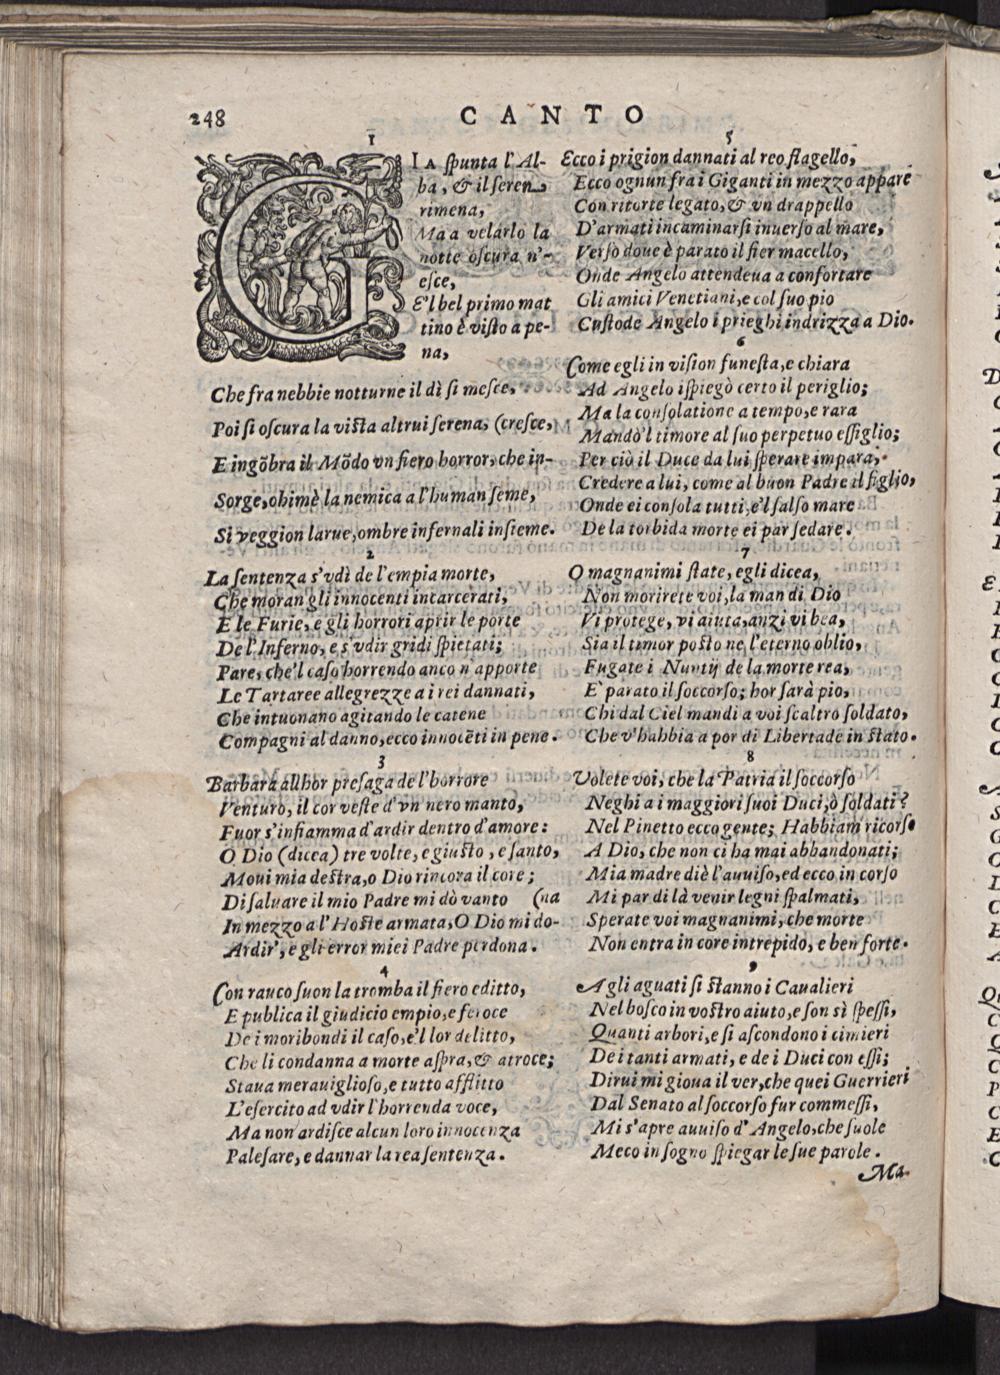 248
CANTO
1
GIA ſpunta l'Al-
ba, & il ſeren
rimena,
Ma a velarlo la
notte oſcura n'-
eſce,
E'l bel primo mat
tino è viſto a pe-
na,
Che fra nebbie notturne il dì ſi meſce,
Poi ſi oſcura la viſta altrui ſerena, (creſce,
E ingõbra il Mõdo vn fiero horror, che in-
Sorge, ohimè la nemica a l'human ſeme,
Si veggion larue, ombre infernali inſieme.
2
La ſentenza s'vdì de l'empia morte,
Che moran gli innocenti incarcerati,
E le Furie, e gli horrori aprir le porte
De l'Inferno, e s'vdir gridi ſpietati;
Pare, che'l caſo horrendo anco n'apporte
Le Tartaree allegrezze a i rei dannati,
Che intuonano agitando le catene
Compagni al danno, ecco innocẽti in pene.
3
Barbara allhor preſaga de l'horrore
Venturo, il cor veſte d'vn nero manto,
Fuor s'infiamma d'ardir dentro d'amore:
O Dio (dicea) tre volte, e giuſto, e ſanto,
Moui mia deſtra, o Dio rincora il core;
Di ſaluare il mio Padre mi dò vanto (na
In mezzo a l'Hoſte armata, O Dio mi do-
Ardir', e gli error miei Padre perdona.
4
Con rauco ſuon la tromba il fiero editto,
E publica il giudicio empio, e feroce
De i moribondi il caſo, e'l lor delitto,
Che li condanna a morte aſpra, & atroce;
Staua merauiglioſo, e tutto afflitto
L'eſercito ad vdir l'horrenda voce,
Ma non ardiſce alcun loro innocenza
Paleſare, e dannar la rea ſentenza.
5
Ecco i prigion dannati al reo flagello,
Ecco ognun fra i Giganti in mezzo appare
Con ritorte legato, & vn drappello
D'armati incaminarſi inuerſo al mare,
Verſo doue è parato il fier macello,
Onde Angelo attendeua a confortare
Gli amici Venetiani, e col ſuo pio
Cuſtode Angelo i prieghi indrizza a Dio.
6
Come egli in viſion funeſta, e chiara
Ad Angelo iſpiegò certo il periglio;
Ma la conſolatione a tempo, e rara
Mandò'l timore al ſuo perpetuo eſſiglio;
Per ciò il Duce da lui ſperare impara,
Credere a lui, come al buon Padre il figlio,
Onde ei conſola tutti, e'l falſo mare
De la torbida morte ei par ſedare.
7
O magnanimi ſtate, egli dicea,
Non morirete voi, la man di Dio
Vi protege, vi aiuta, anzi vi bea,
Sia il timor poſto ne l'eterno oblio,
Fugate i Nuntij de la morte rea,
E' parato il ſoccorſo; hor ſarà pio,
Chi dal Ciel mandi a voi ſcaltro ſoldato,
Che v'habbia a por di Libertade in ſtato.
8
Volete voi, che la Patria il ſoccorſo
Neghi a i maggiori ſuoi Duci, ò ſoldati?
Nel Pinetto ecco gente; Habbiam ricorſo
A Dio, che non ci ha mai abbandonati;
Mia madre diè l'auuiſo, ed ecco in corſo
Mi par di là venir legni ſpalmati,
Sperate voi magnanimi, che morte
Non entra in core intrepido, e ben forte.
9
A gli aguati ſi ſtanno i Caualieri
Nel boſco in voſtro aiuto, e ſon sì ſpeſſi,
Quanti arbori, e ſi aſcondono i cimieri
De i tanti armati, e de i Duci con eſſi;
Dirui mi gioua il ver, che quei Guerrieri
Dal Senato al ſoccorſo fur commeſſi,
Mi s'apre auuiſo d'Angelo, che ſuole
Meco in ſogno ſpiegar le ſue parole.
Ma